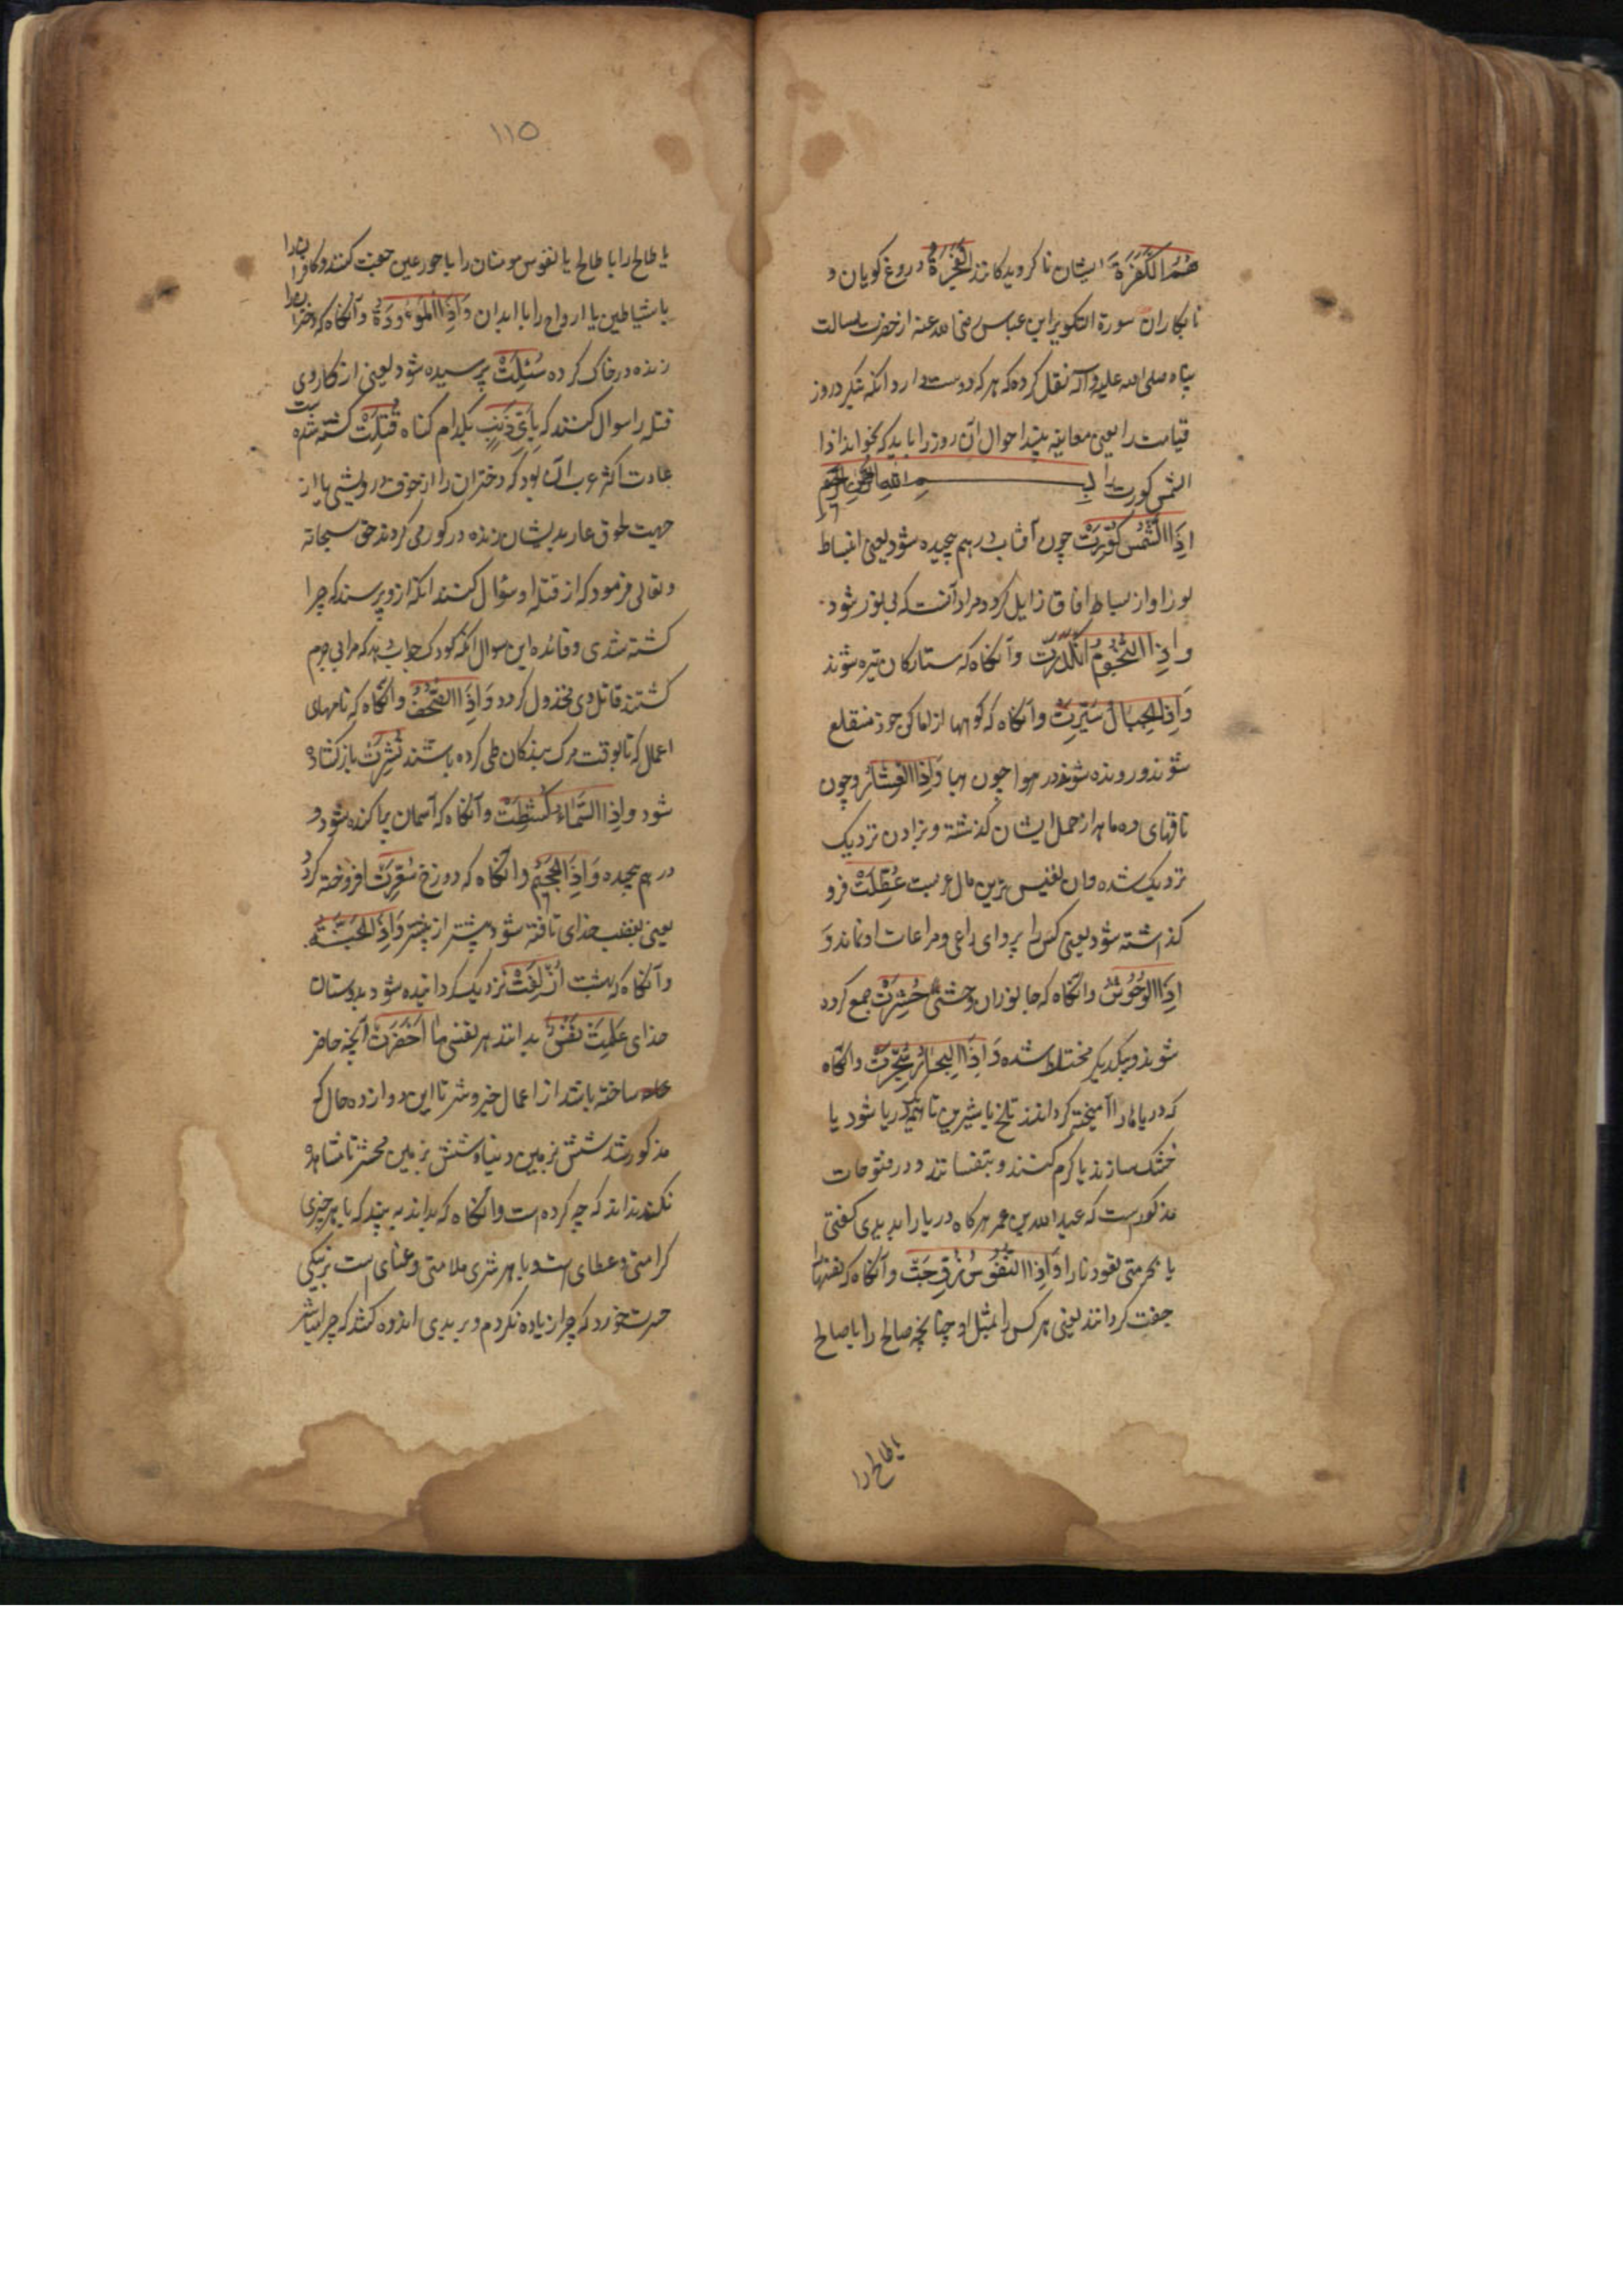 هُمُ الْكَفَرَةُ ایشان ناکرویدکانند الْفَجَرَةُ دروغ کویان و
نابکاران سورة التکویر ابن عباس رضی الله عنه از حضرت رسالت
پناه صلی الله علیه و آله نقل کرده که هر که دوست دارد انکه بنکرد روز
قیامت را یعنی معاینه بیند احوال آن روز را باید که بخواند اذا
الشمس کورت را بِسْمِ اللهِ الرَّحْمٰنِ الرَّحِيْمِ
اِذَا الشَّمْسُ كُوِّرَتْ چون آفتاب در هم پیچیده شود یعنی انبساط
نور او از بساط افاق زایل کردد مراد آنست که بی نور شود
وَاِذَا النُّجُوْمُ انْكَدَرَتْ وآنکاه که ستارکان تیره شوند
وَاِذَا الْجِبَالُ سُيِّرَتْ وآنکاه که کوهها از اماکن خود منقلع
شوند و رونده شوند در هوا چون هبا وَاِذَا الْعِشَارُ و چون
ناقهای ده ماهه از حمل ایشان کذشته و بزادن نزدیک
نزدیک شده وان نفیس ترین مال عربست عُطِّلَتْ فرو
کذاشته شود یعنی کس را پروای راعی و مراعات او نماند وَ
اِذَا الْوُحُوْشُ وانکاه که جانوران وحشی حُشِرَتْ جمع کرده
شوند و بیکدیکر مختلط شده وَاِذَا الْبِحَارُ سُجِّرَتْ وانکاه
که دریاها را آمیخته کردانند تلخ با شیرین تا همه یک دریا شود یا
خشک سازند یا کرم کنند و بتفسانند و در فتوحات
مذکورست که عبد الله بن عمر هر کاه دریا را بدیدی کفتی
یا بحر متی تعود نارا وَاِذَا النُّفُوْسُ زُوِّجَتْ وآنکاه که نفسها را
جفت کردانند یعنی هر کس را بمثل او چنانچه صالح را با صالح
یا طالح را
۱۱۵
یا طالح را با طالح یا نفوس مومنان را با حور عین جفت کنند و کافران را
با شیاطین یا ارواح را با ابدان وَاِذَا الْمَوْءُوْدَةُ وآنکاه که دختران را
زنده در خاک کرده سُئِلَتْ پرسیده شود یعنی از وکار وی
قتله را سوال کنند که بِاَیِّ ذَنْبٍ بکدام کناه قُتِلَتْ کشته شده است
عادت اکثر عرب آن بود که دختران را از خوف درویشی یا از
جهت لحوق عار بدیشان زنده در کور می کردند حق سبحانه
وتعالی فرمود که از قتله او سؤال کنند انکه ازو پرسند که چرا
کشته شدی و فائده این سوال انکه کودک جواب دهد که مرا بی جرم
کشتند قاتل وی مخذول کردد وَاِذَا الصُّحُفُ وانکاه که نامهای
اعمال که تا بوقت مرک بندکان طی کرده باشند نُشِرَتْ باز کشاده
شود وَاِذَا السَّمَاءُ كُشِطَتْ وآنکاه که آسمان برکنده شود و
در هم پیچیده وَاِذَا الْجَحِيْمُ وانکاه که دوزخ سُعِّرَتْ افروخته کردد
یعنی بغضب خدای تافته شود بیشتر از پیشتر وَاِذَا الْجَنَّةُ
وآنکاه که بهشت اُزْلِفَتْ نزدیک کردانیده شود بدوستان
خدای عَلِمَتْ نَفْسٌ بداند هر نفسی مَا اَحْضَرَتْ آنچه حاضر
ساخته باشد از اعمال خیر و شر تا این دوازده حال که
مذکور شد شش بزمین دنیا و شش بزمین محشر تا مشاهده
نکنند نداند که چه کرده است وانکاه که بداند به بیند که با هر چیزی
کرامتی و عطای است و با هر شری ملامتی و عنای است بر نیکی
حسرت خورد که چرا زیاده نکردم و بر بدی اندوه کشد که چرا مباشر